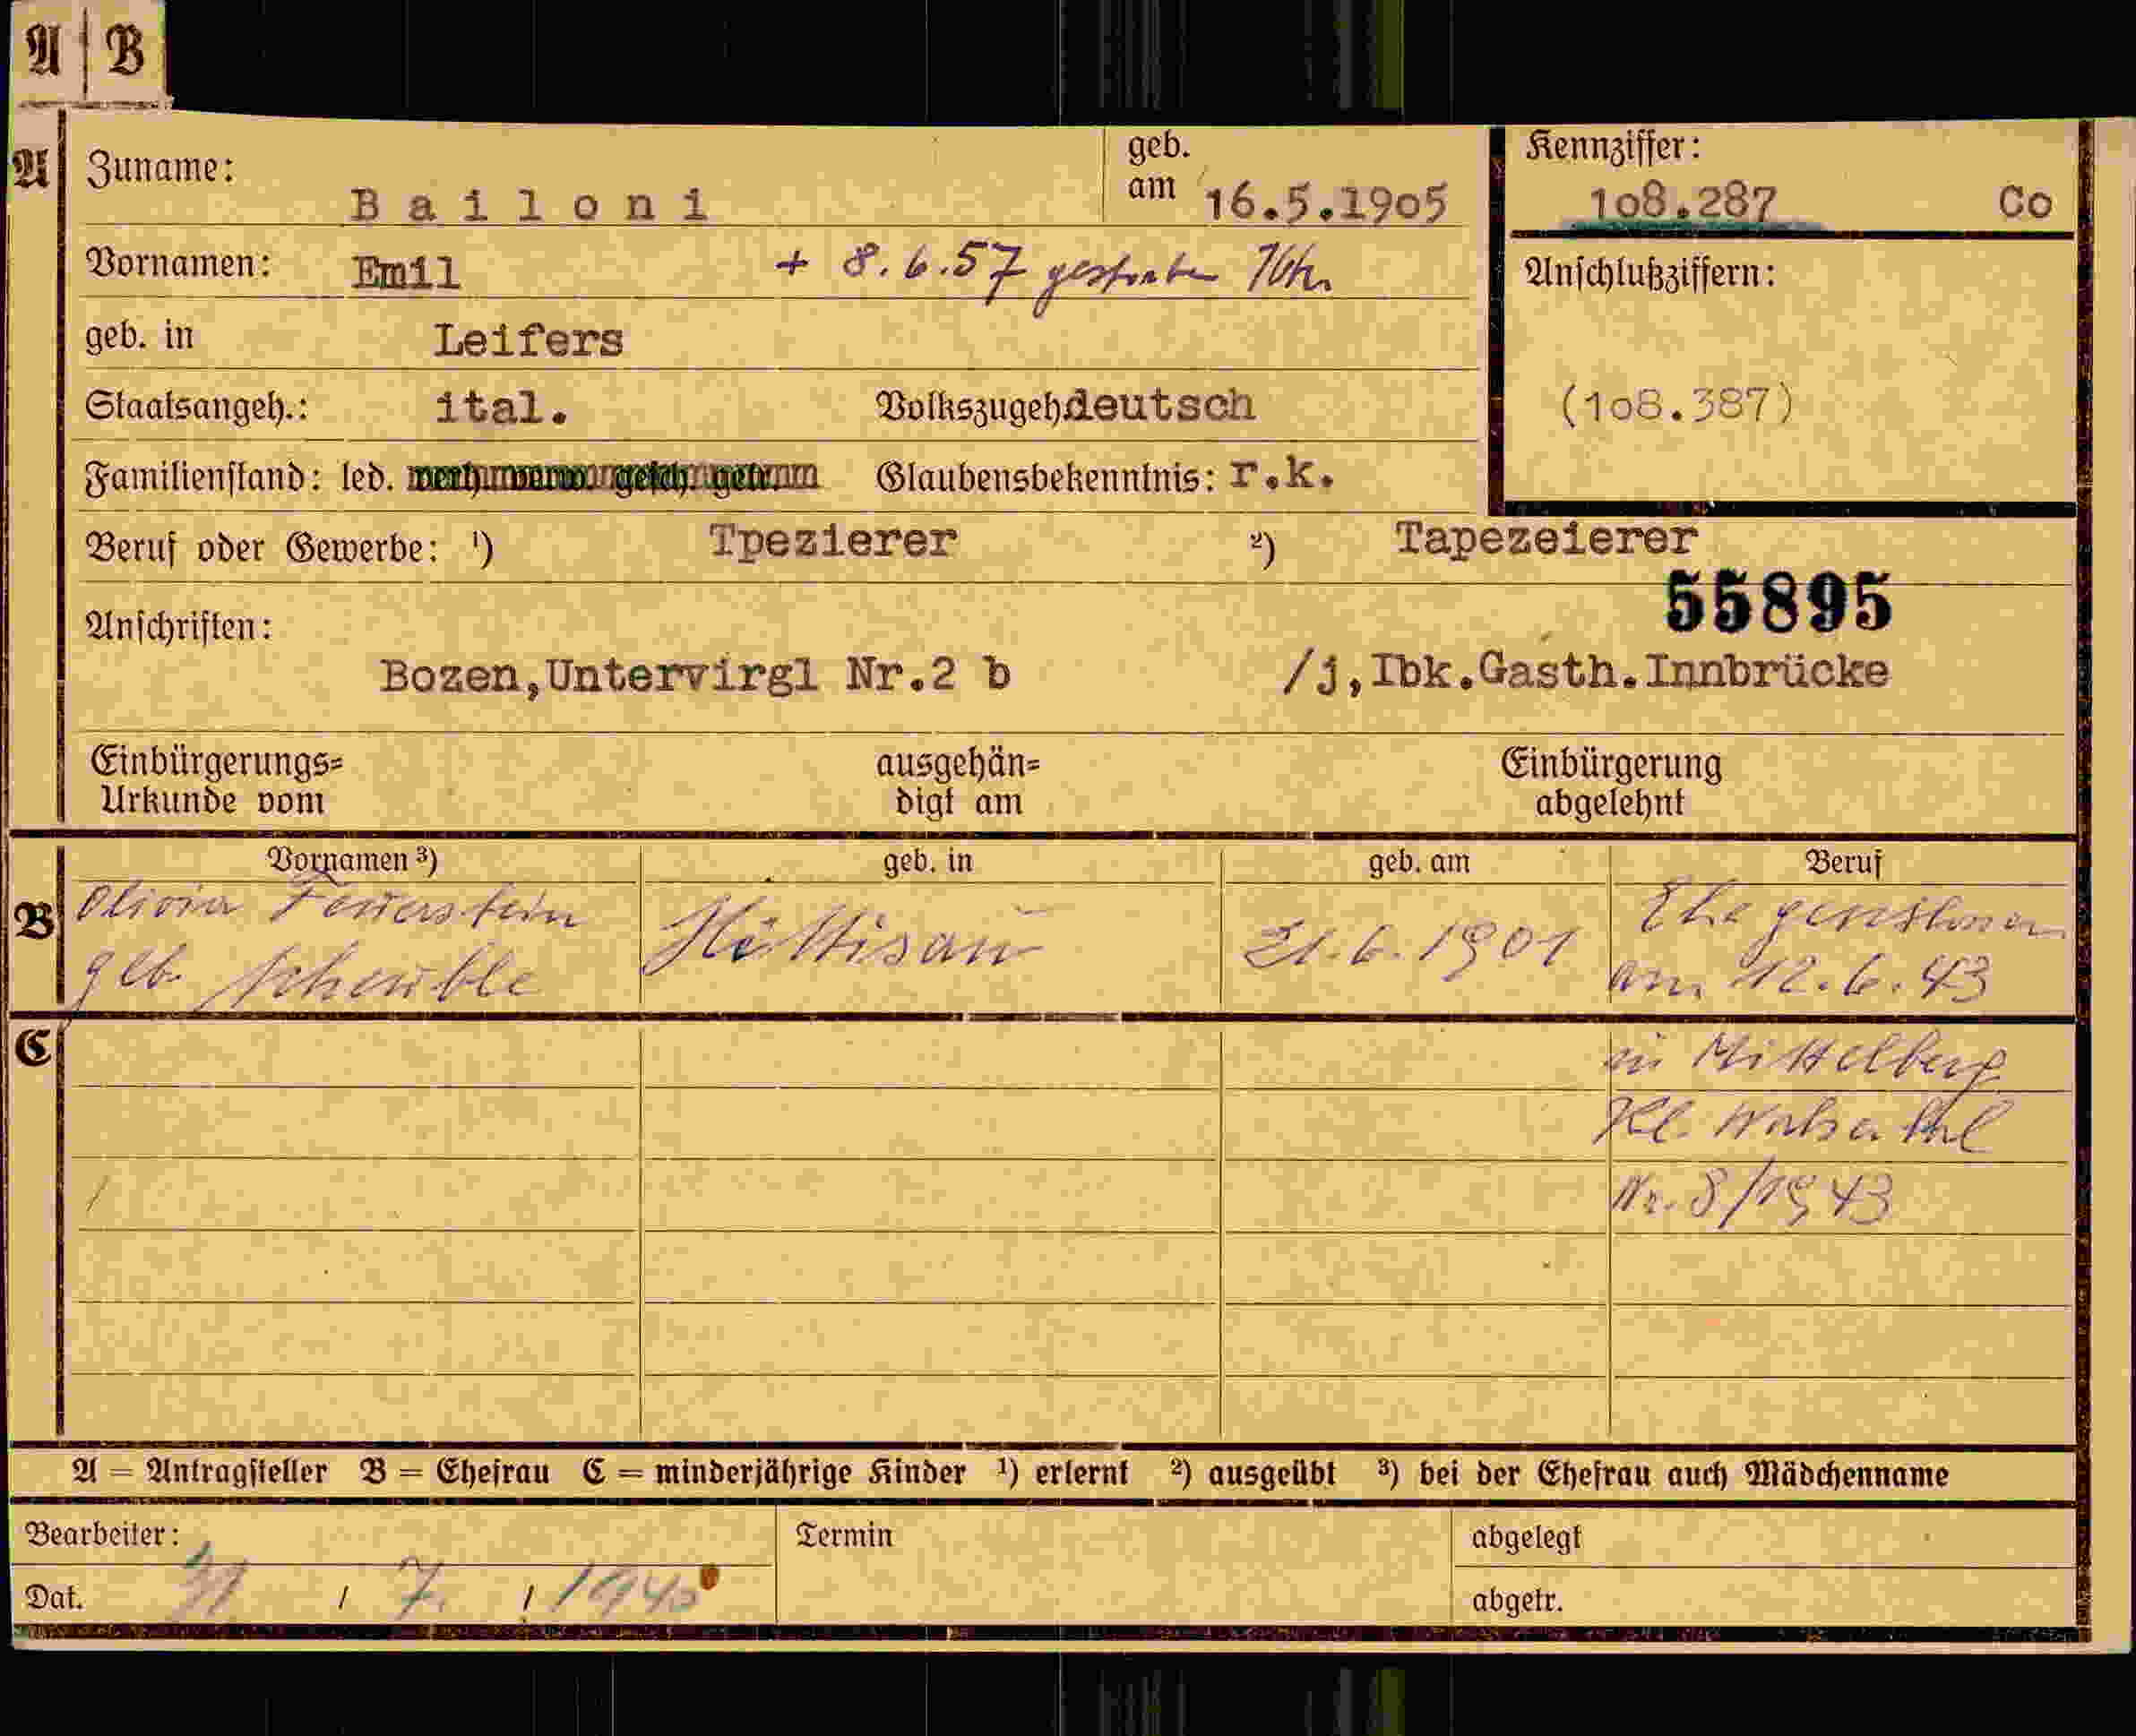 A B
A Zuname: Bailoni geb. am 16.5.1905
Kennziffer: 108.287 Co
Vornamen: Emil + 8.6.57 gestorben
Anschlußziffern:
(108.387)
geb. in Leifers
Staatsangeh.: ital. Volkszugeh. deutsch
Familienstand: led. verh. verw. gesch. getr. Glaubensbekenntnis: r.k.
Beruf oder Gewerbe: ¹) Tpezierer ²) Tapezeierer
55895
Anschriften:
Bozen,Untervirgl Nr.2 b /j,Ibk.Gasth.Innbrücke
Einbürgerungs= Urkunde vom
ausgehän= digt am
Einbürgerung abgelehnt
Vornamen ³) geb. in geb. am Beruf
B Olivia Feuerstein Hittisau 21.6.1901 Ehe geschlossen
geb. Scheuble am 12.6.43
C in Mittelberg
Kl. Walsertal
Nr. 8/1943
A = Antragsteller B = Ehefrau C = minderjährige Kinder ¹) erlernt ²) ausgeübt ³) bei der Ehefrau auch Mädchenname
Bearbeiter: Termin abgelegt
Dat. 31 / 7. / 1940 abgetr.